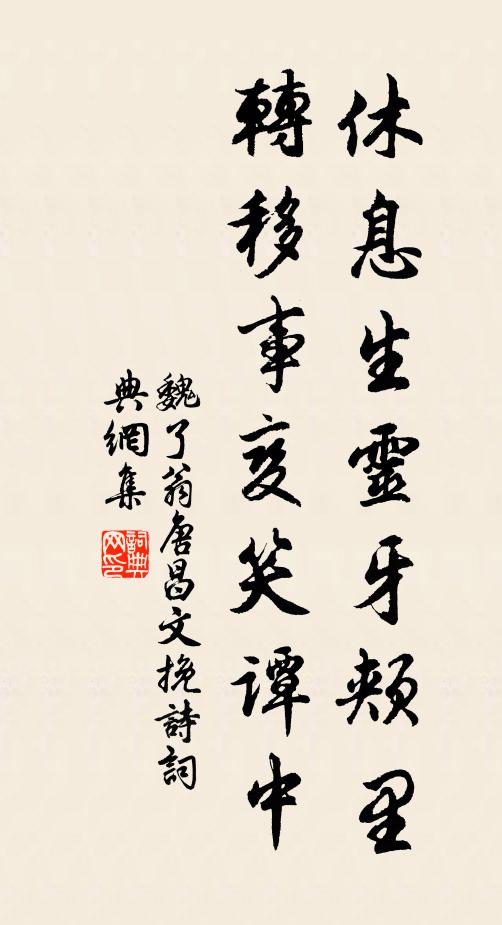 休息生靈牙頰里
轉移事变笑譚中
魏了翁唐昌文挽詩詞
典網集
詞典
网印